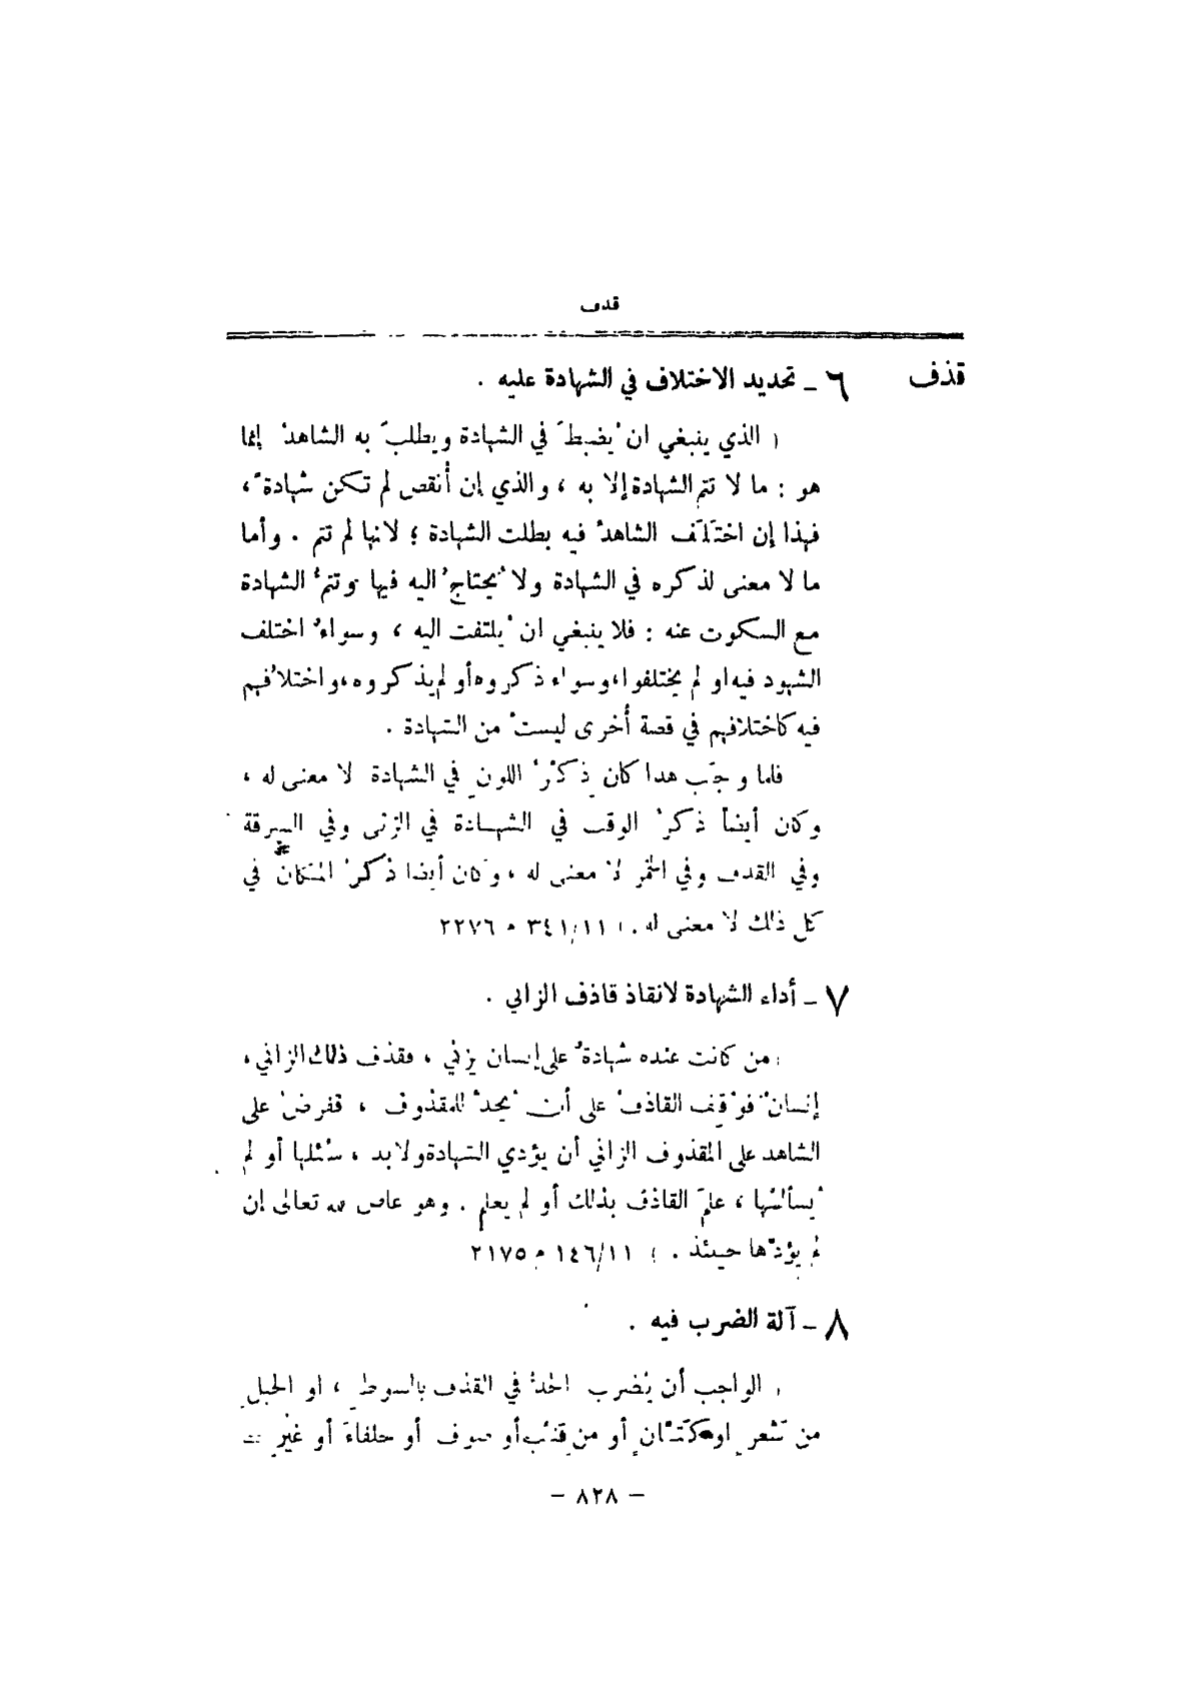 قذف
قذف
٦ ـ تحديد الاختلاف في الشهادة عليه .
الذي ينبغي ان يُضبطَ في الشهادة ويطلبَ به الشاهدُ إنما
هو : ما لا تتم الشهادة إلا به ، والذي إن أُنقص لم تكن شهادةً ،
فهذا إن اختَلَف الشاهدُ فيه بطلت الشهادة ؛ لانها لم تتم . وأما
ما لا معنى لذكره في الشهادة ولا يُحتاجُ اليه فيها وتتمُ الشهادة
مع السكوت عنه : فلا ينبغي ان يُلتفت اليه ، وسواءُ اختلف
الشهود فيه او لم يختلفوا، وسواء ذكروه أو لم يذكروه، واختلافُهم
فيه كاختلافهم في قصة أُخرى ليستْ من الشهادة .
فلما وجَب هذا كان ذِكْرُ اللون في الشهادة لا معنى له ،
وكان أيضاً ذكرُ الوقت في الشهادة في الزنى وفي السرقة
وفي القذف وفي الخمر لا معنى له ، وكان أيضا ذكرُ المكان في
كل ذلك لا معنى له . ١١/٣٤١ م ٢٢٧٦
٧ ـ أداء الشهادة لانقاذ قاذف الزاني .
من كانت عنده شهادةُ على إنسان يزني ، فقذف ذلك الزاني ،
إنسانٌ فوقف القاذفُ على أن يُحدَّ للمقذوف ، ففرضٌ على
الشاهد على المقذوف الزاني أن يؤدي الشهادة ولا بد ، سُئلها أو لم
يُسألْها ، علمَ القاذفُ بذلك أو لم يعلم . وهو عاص لله تعالى إن
لم يؤدّها حينئذ . ١١/١٤٦ م ٢١٧٥
٨ ـ آلة الضرب فيه .
الواجب أن يُضرب الحدُّ في القذف بالسوط ، او الحبل
من شعر او كَتّان أو من قنّب أو صوف أو حلفاءَ أو غير
– ٨٢٨ –